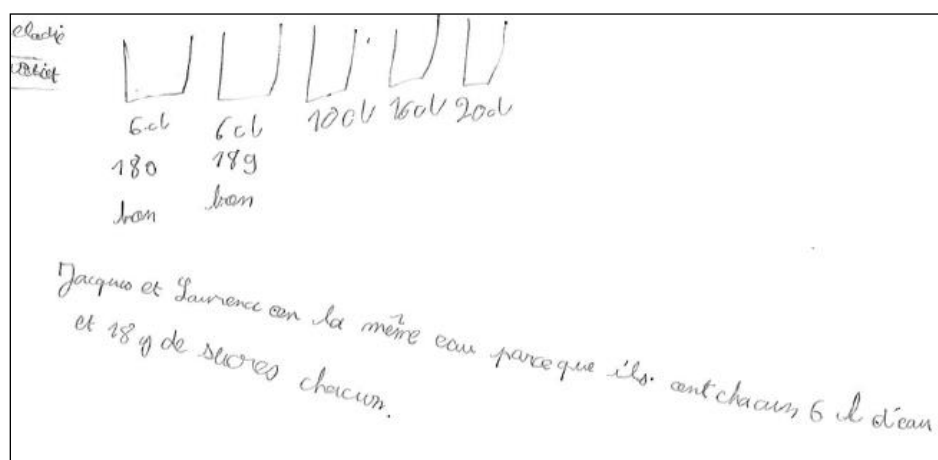 elodie
6cl 6cl 10cl 16cl 20cl
180 18g
bon bon
Jacques et Laurence on la même eau parce que ils. ont chacun 6 l d'eau
et 18 g de sucres chacun.